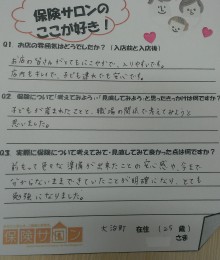 保険サロンの
ここが好き!
Q1 お店の雰囲気はどうでしたか?(入店前と入店後)
お店の皆さんがとてもにこやかで、入りやすいです。
店内もキレイで、子ども連れでも安心です。
Q2 保険について「考えてみよう」「見直してみよう」と思ったきっかけは何ですか?
子どもが産まれたことと、職場の関係で考えてみようと
思いました。
Q3 実際に保険について考えてみて・見直してみて良かった点は何ですか?
前もって色々な準備が出来たことの安心感や、今まで
分からないままできていたことが明確になり、とても
勉強になりました。
保険サロン
大治町 在住 (25歳)
さま